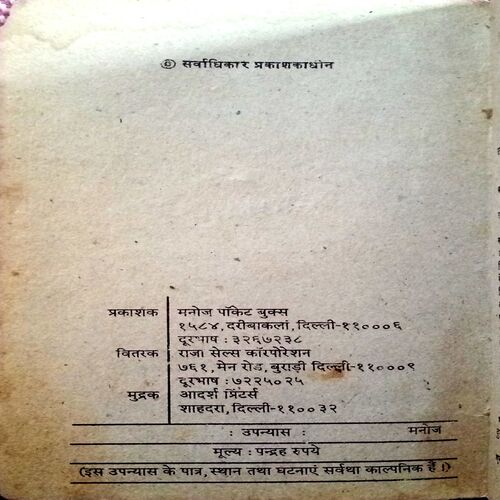 © सर्वाधिकार प्रकाशकाधीन
प्रकाशक मनोज पॉकेट बुक्स
१५८४, दरीबाकलां, दिल्ली-११०००६
दूरभाष : ३२६७२३८
वितरक राजा सेल्स कॉरपोरेशन
७६१, मेन रोड, बुराड़ी दिल्ली-११०००९
दूरभाष : ७२२५०२५
मुद्रक आदर्श प्रिंटर्स
शाहदरा, दिल्ली-११००३२
: उपन्यास : मनोज
मूल्य : पन्द्रह रुपये
(इस उपन्यास के पात्र, स्थान तथा घटनाएं सर्वथा काल्पनिक हैं।)